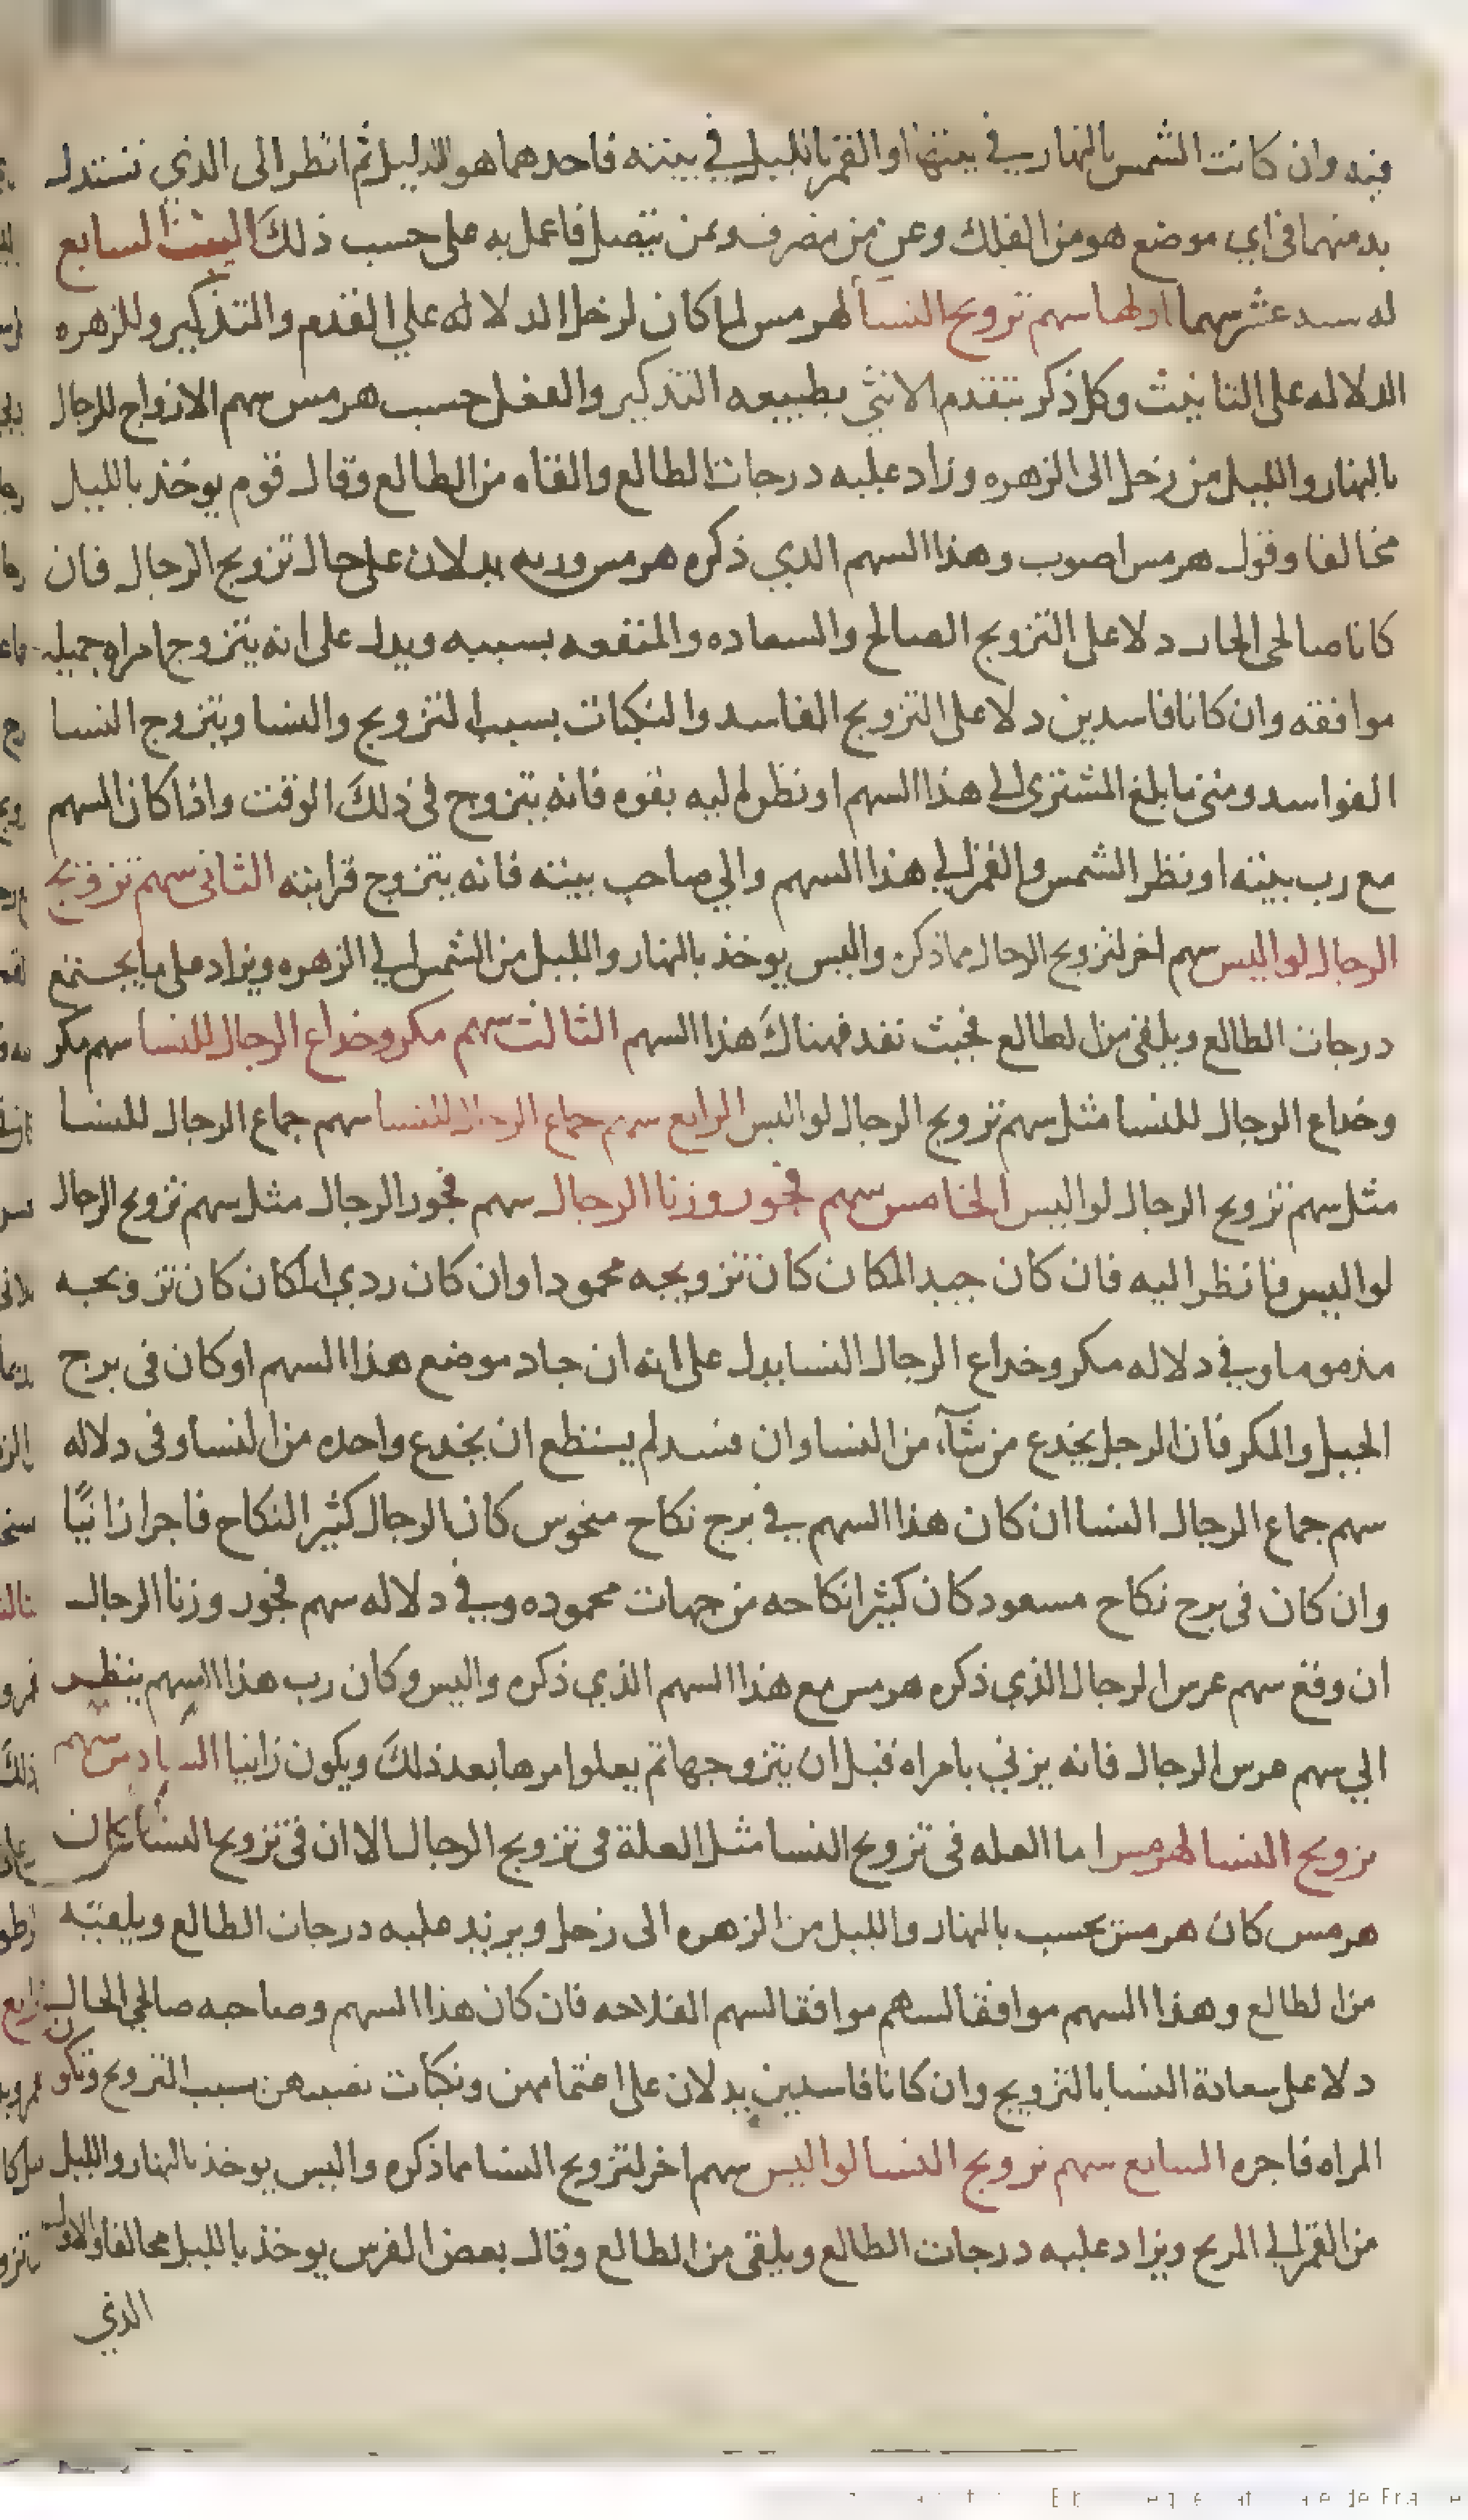 فيه وان كانت الشمس بالنهار في بيتها او القمر بالليل في بيته فاحدهما هو الدليل ثم انظر الى الذي تستدل
به منهما في اي موضع هو من الفلك وعن من ينصرف وبمن يتصل فاعمل به على حسب ذلك البيت السابع
له سته عشر سهما اولها سهم تزويج النسا لهرمس لما كان لزحل الدلاله علي القدم والتذكير وللزهره
الدلاله على التانيث وكل ذكر يتقدم الانثى بطبيعه التذكير والفعل حسب هرمس سهم الازواج للرجال
بالنهار والليل من زحل الى الزهره وزاد عليه درجات الطالع والقاه من الطالع وقال قوم يوخذ بالليل
مخالفا وقول هرمس اصوب وهذا السهم الدي ذكره هرمس وربه يدلان على حال تزويج الرجال فان
كانا صالحى الحال دلا على التزويج الصالح والسعاده والمنفعه بسببه ويدل على انه يتزوج امراه جميله
موافقه وان كانا فاسدين دلا على التزويج الفاسد والنكبات بسبب التزويج والنسا ويتزوج النسا
الفواسد ومتى ما بلغ المشترى الى هذا السهم او نظر اليه بقوه فانه يتزوج في ذلك الوقت واذا كان السهم
مع رب بيته او نظر الشمس والقمر الي هذا السهم والي صاحب بيته فانه يتزوج قرابته الثانى سهم تزويج
الرجال لواليس سهم اخر لتزويج الرجال مما ذكره واليس يوخذ بالنهار والليل من الشمس الي الزهره ويزاد على ما يجتمع
درجات الطالع ويلقى من الطالع فحيث نفد فهناك هذا السهم الثالث سهم مكر وخداع الرجال للنسا سهم مكر
وخداع الرجال للنسا مثل سهم تزويج الرجال لواليس الرابع سهم جماع الرجال للنسا سهم جماع الرجال للنسا
مثل سهم تزويج الرجال لواليس الخامس سهم فجور وزنا الرجال سهم فجور الرجال مثل سهم تزويج الرجال
لواليس فانظر اليه فان كان جيد المكان كان تزويجه محمودا وان كان ردي المكان كان تزويجه
مذموما وفي دلاله مكر وخداع الرجال النسا يدل على انه ان جاد موضع هذا السهم او كان في برج
الحيل والمكر فان الرجل يخدع من شآء من النسا وان فسد لم يستطع ان يخدع واحده من النسا وفى دلاله
سهم جماع الرجال النسا ان كان هذا السهم في برج نكاح منحوس كان الرجال كثير النكاح فاجرا زانيًا
وان كان في برج نكاح مسعود كان كثيرا نكاحه من جهات محموده وفي دلاله سهم فجور وزنا الرجال
ان وقع سهم عرس الرجال الذي ذكره هرمس مع هذا السهم الذي ذكره واليس وكان رب هذا السهم ينظر
الي سهم عرس الرجال فانه يزني بامراه قبل ان يتزوجها ثم يعلوا مرها بعد ذلك ويكون زانيا السادس سهم
تزويج النسا لهرمس اما العله في تزويج النسا مثل العلة في تزويج الرجال الا ان في تزويج النسا كان
هرمس كان هرمس يحسب بالنهار والليل من الزهره الى زحل ويريد عليه درجات الطالع ويلقيه
من الطالع وهذا السهم موافقا لسهم موافقا لسهم الفلاحه فان كان هذا السهم وصاحبه صالحي الحال
دلا على سعادة النسا بالتزويج وان كانا فاسدين يدلان على اغتمامهن ونكبات تصيبهن بسبب التزويج وتكون
المراه فاجره السابع سهم تزويج النسا لواليس سهم اخر لتزويج النسا مما ذكره واليس يوخذ بالنهار والليل
من القمر الي المريح ويزاد عليه درجات الطالع ويلقى من الطالع وقال بعض الفرس يوخذ بالليل مخالفا والاول
الذي